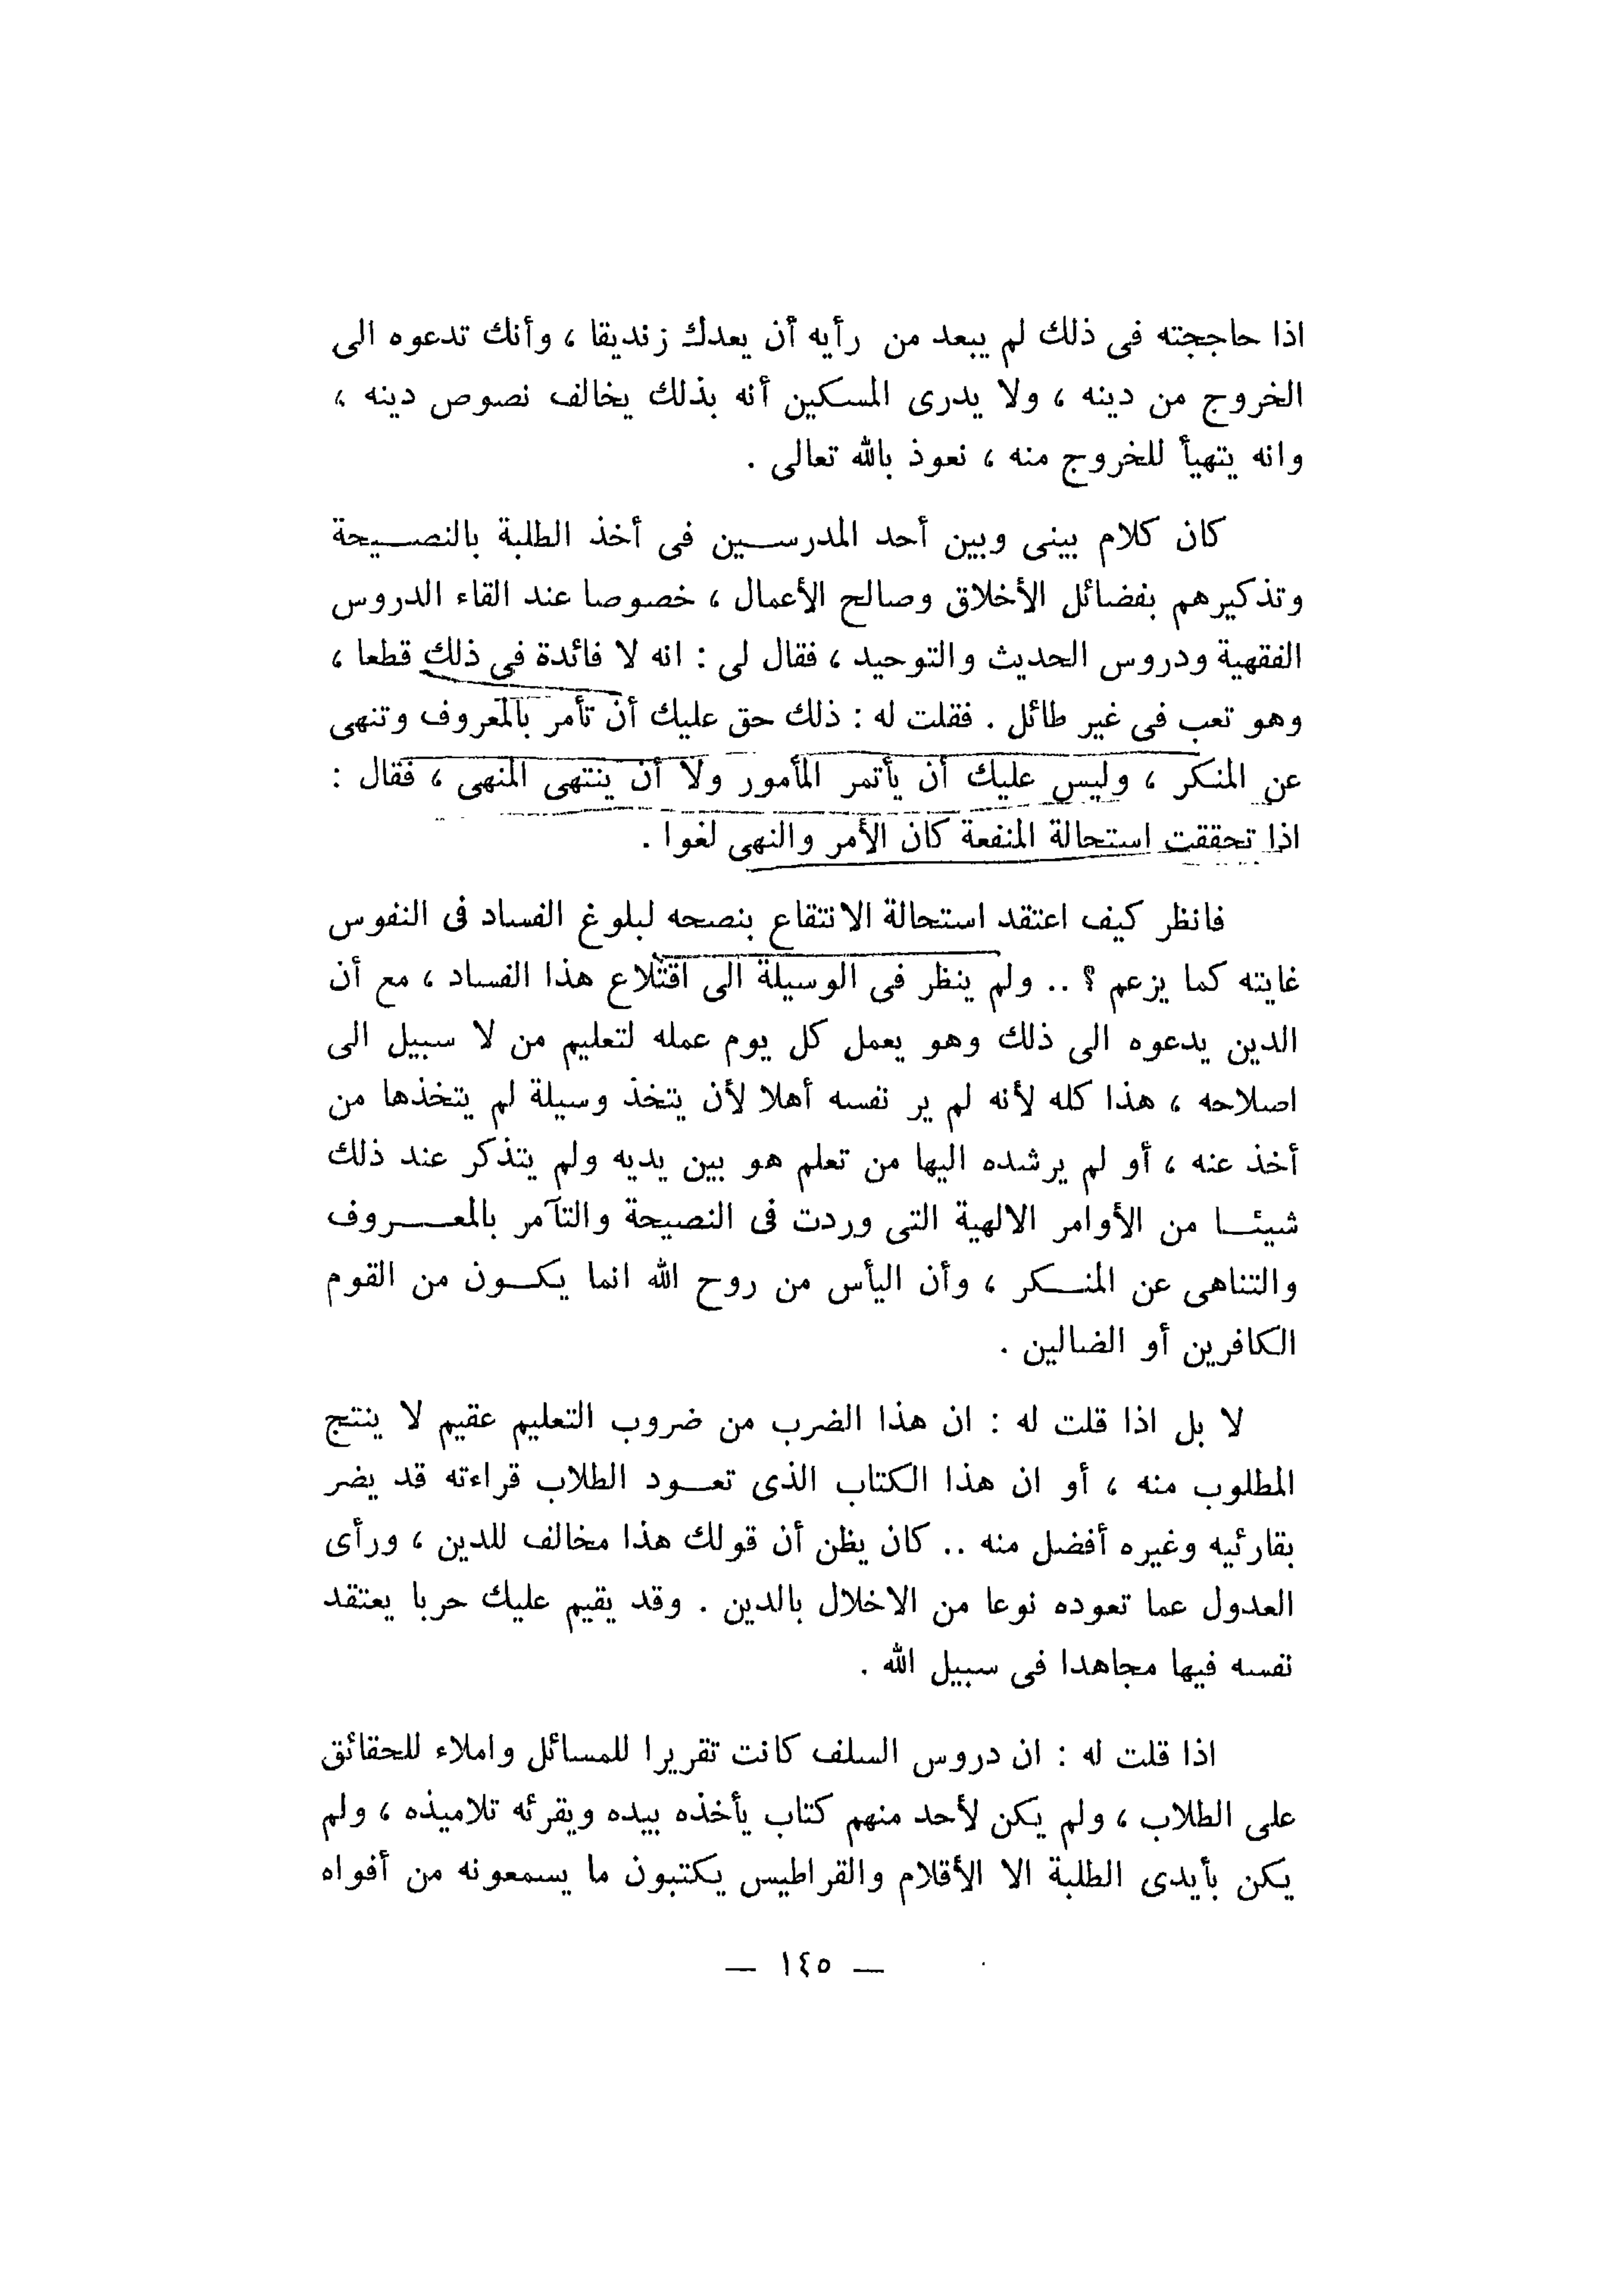 اذا حاججته فى ذلك لم يبعد من رأيه أن يعدك زنديقا ، وأنك تدعوه الى
الخروج من دينه ، ولا يدرى المسكين أنه بذلك يخالف نصوص دينه ،
وانه يتهيأ للخروج منه ، نعوذ بالله تعالى .
كان كلام بينى وبين أحد المدرسين فى أخذ الطلبة بالنصيحة
وتذكيرهم بفضائل الأخلاق وصالح الأعمال ، خصوصا عند القاء الدروس
الفقهية ودروس الحديث والتوحيد ، فقال لى : انه لا فائدة فى ذلك قطعا ،
وهو تعب فى غير طائل . فقلت له : ذلك حق عليك أن تأمر بالمعروف وتنهى
عن المنكر ، وليس عليك أن يأتمر المأمور ولا أن ينتهى المنهى ، فقال :
اذا تحققت استحالة المنفعة كان الأمر والنهى لغوا .
فانظر كيف اعتقد استحالة الانتقاع بنصحه لبلوغ الفساد فى النفوس
غايته كما يزعم ؟ .. ولم ينظر فى الوسيلة الى اقتلاع هذا الفساد ، مع أن
الدين يدعوه الى ذلك وهو يعمل كل يوم عمله لتعليم من لا سبيل الى
اصلاحه ، هذا كله لأنه لم ير نفسه أهلا لأن يتخذ وسيلة لم يتخذها من
أخذ عنه ، أو لم يرشده اليها من تعلم هو بين يديه ولم يتذكر عند ذلك
شيئا من الأوامر الالهية التى وردت فى النصيحة والتآمر بالمعروف
والتناهى عن المنكر ، وأن اليأس من روح الله انما يكون من القوم
الكافرين أو الضالين .
لا بل اذا قلت له : ان هذا الضرب من ضروب التعليم عقيم لا ينتج
المطلوب منه ، أو ان هذا الكتاب الذى تعود الطلاب قراءته قد يضر
بقارئيه وغيره أفضل منه .. كان يظن أن قولك هذا مخالف للدين ، ورأى
العدول عما تعوده نوعا من الاخلال بالدين . وقد يقيم عليك حربا يعتقد
نفسه فيها مجاهدا فى سبيل الله .
اذا قلت له : ان دروس السلف كانت تقريرا للمسائل واملاء للحقائق
على الطلاب ، ولم يكن لأحد منهم كتاب يأخذه بيده ويقرئه تلاميذه ، ولم
يكن بأيدى الطلبة الا الأقلام والقراطيس يكتبون ما يسمعونه من أفواه
— ١٤٥ —